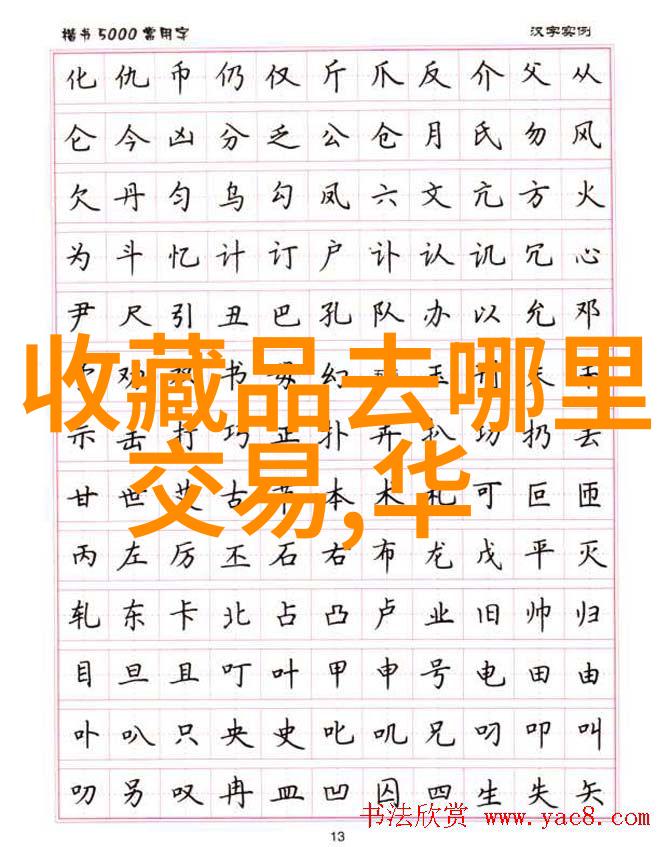 楷书5000常用字 汉字实例
化仇币仍仅斤爪反介父从
仑今凶分乏公仓月氏勿风
欠丹匀乌勾凤六文亢方火
为斗忆计订户讣认讥冗心
尹尺引丑巴孔队办以允邓
书毋幻
收藏品去哪里
示击打巧正扑卉扒功扔去
甘世艾古节本术札可叵匝
交易,华
丙左厉丕石右布龙戊平灭
轧东卡北占凸卢业旧帅归
目旦且叮叶甲申号电田由
卟叭只央史叱叽兄叼叩叫
叻另叹冉皿凹囚四生失矢
书法欣赏 www.yac8.com
13